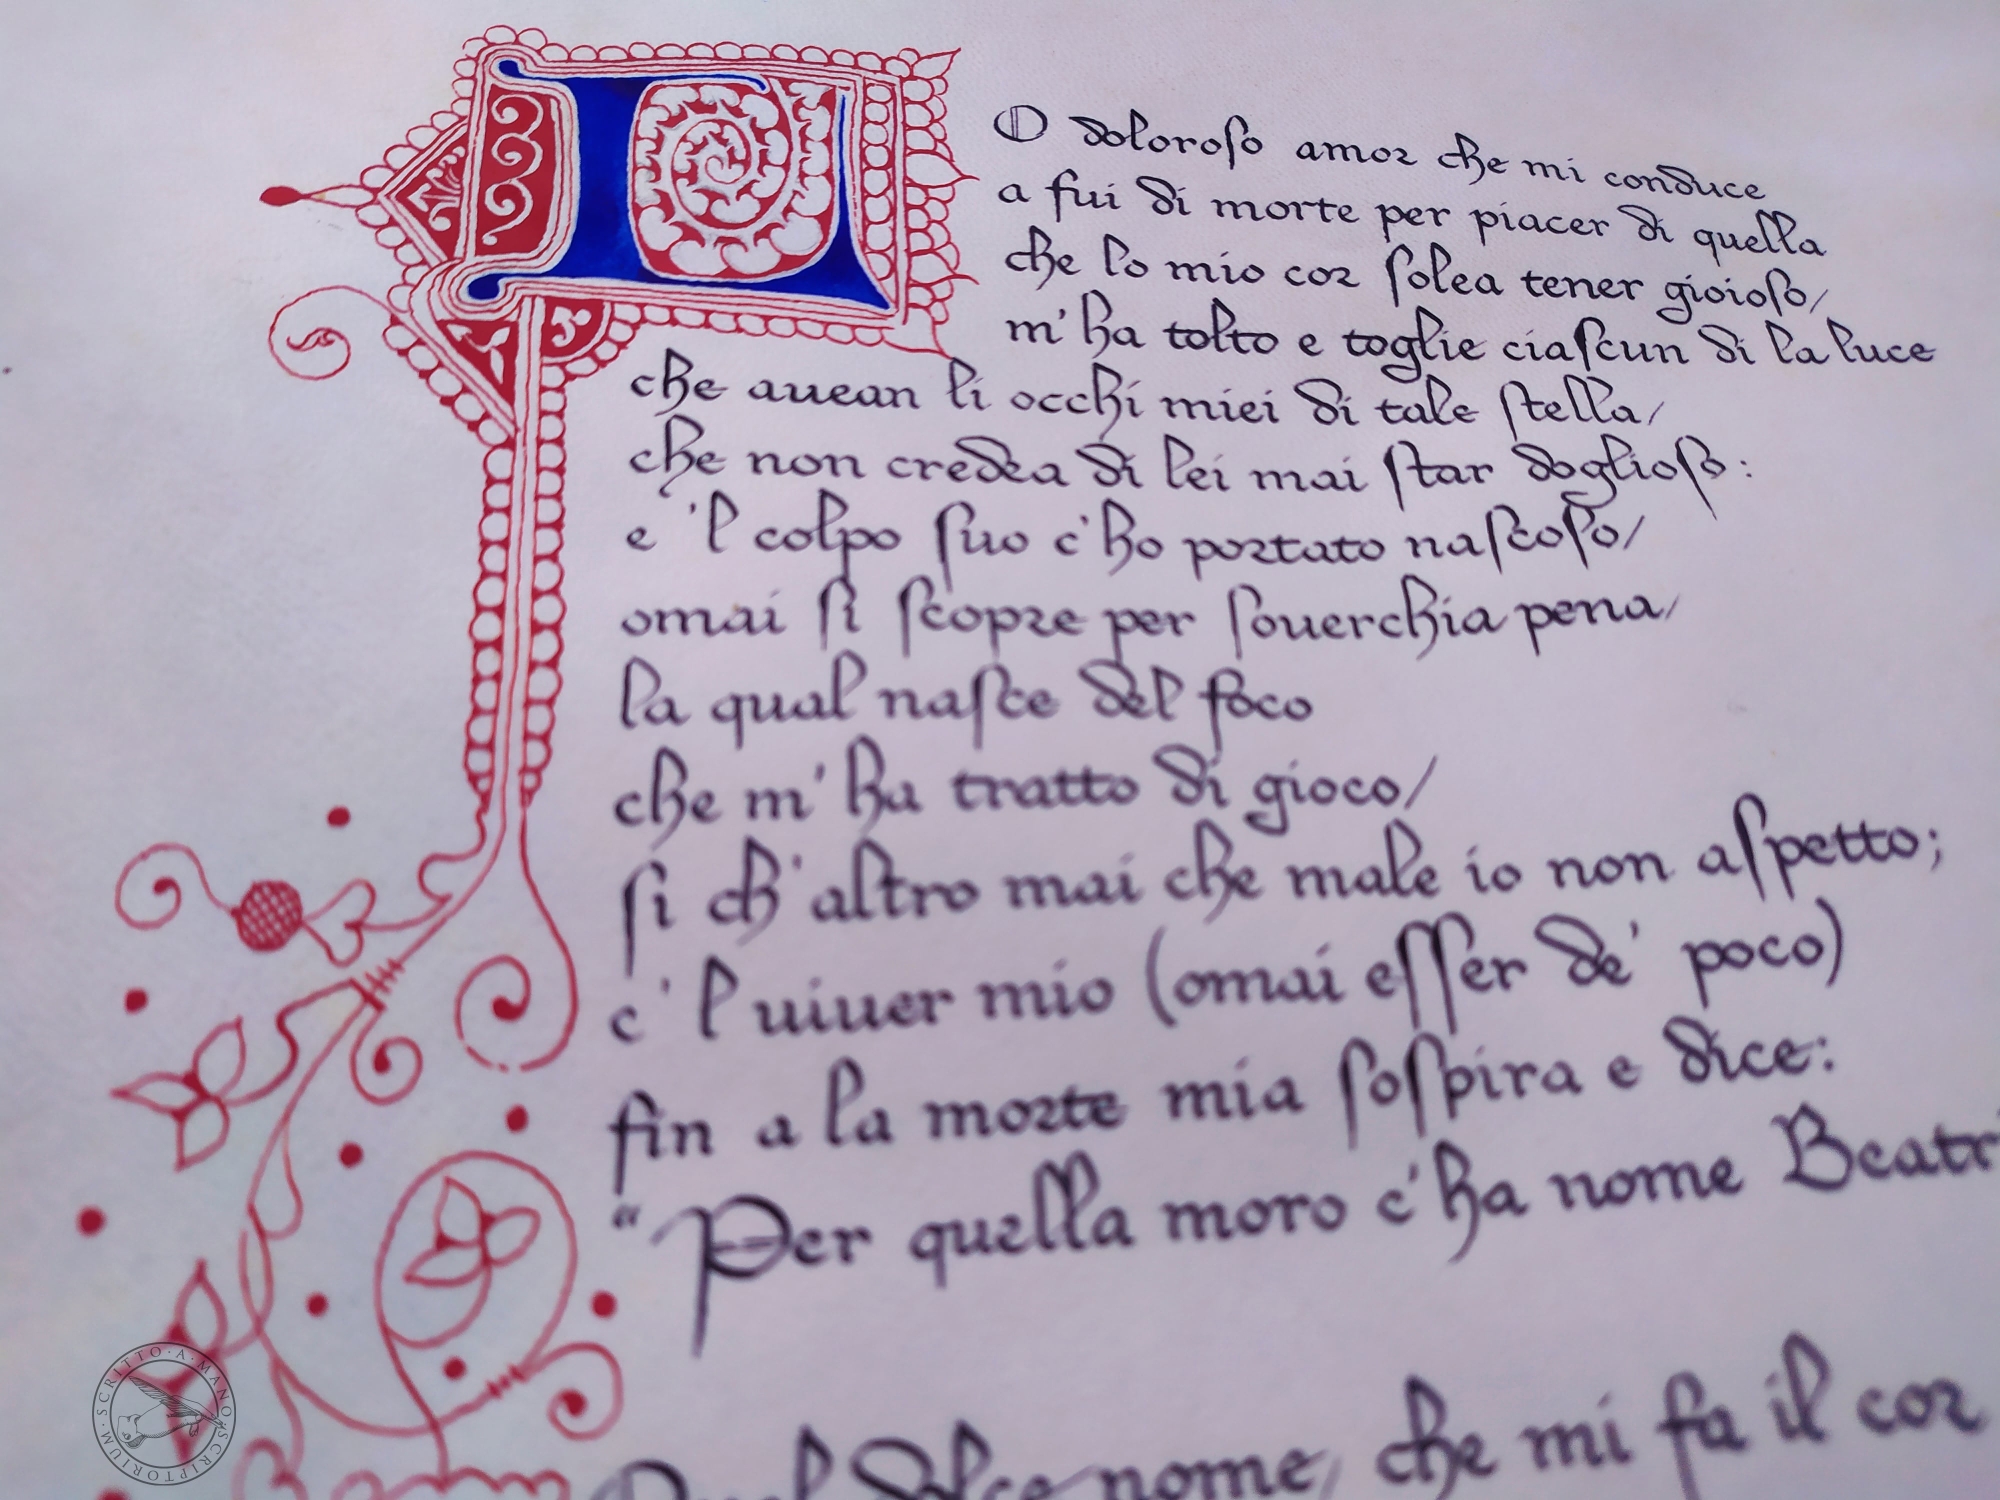 LO doloroſo amor che mi conduce
a fui di morte per piacer di quella
che lo mio cor ſolea tener gioioſo/
m'ha tolto e toglie ciaſcun di la luce
che auean li occhi miei di tale ſtella/
che non credea di lei mai ſtar doglioſo:
e 'l colpo ſuo c'ho portato naſcoſo/
omai ſi ſcopre per ſouerchia pena/
la qual naſce del foco
che m'ha tratto di gioco/
ſi ch'altro mai che male io non aſpetto;
c'l uiuer mio (omai eſſer de' poco)
fin a la morte mia ſoſpira e dice:
“Per quella moro c'ha nome Beatri
Quel dolce nome, che mi fa il cor
SCRITTO·A·MANO·SCRIPTORIUM·